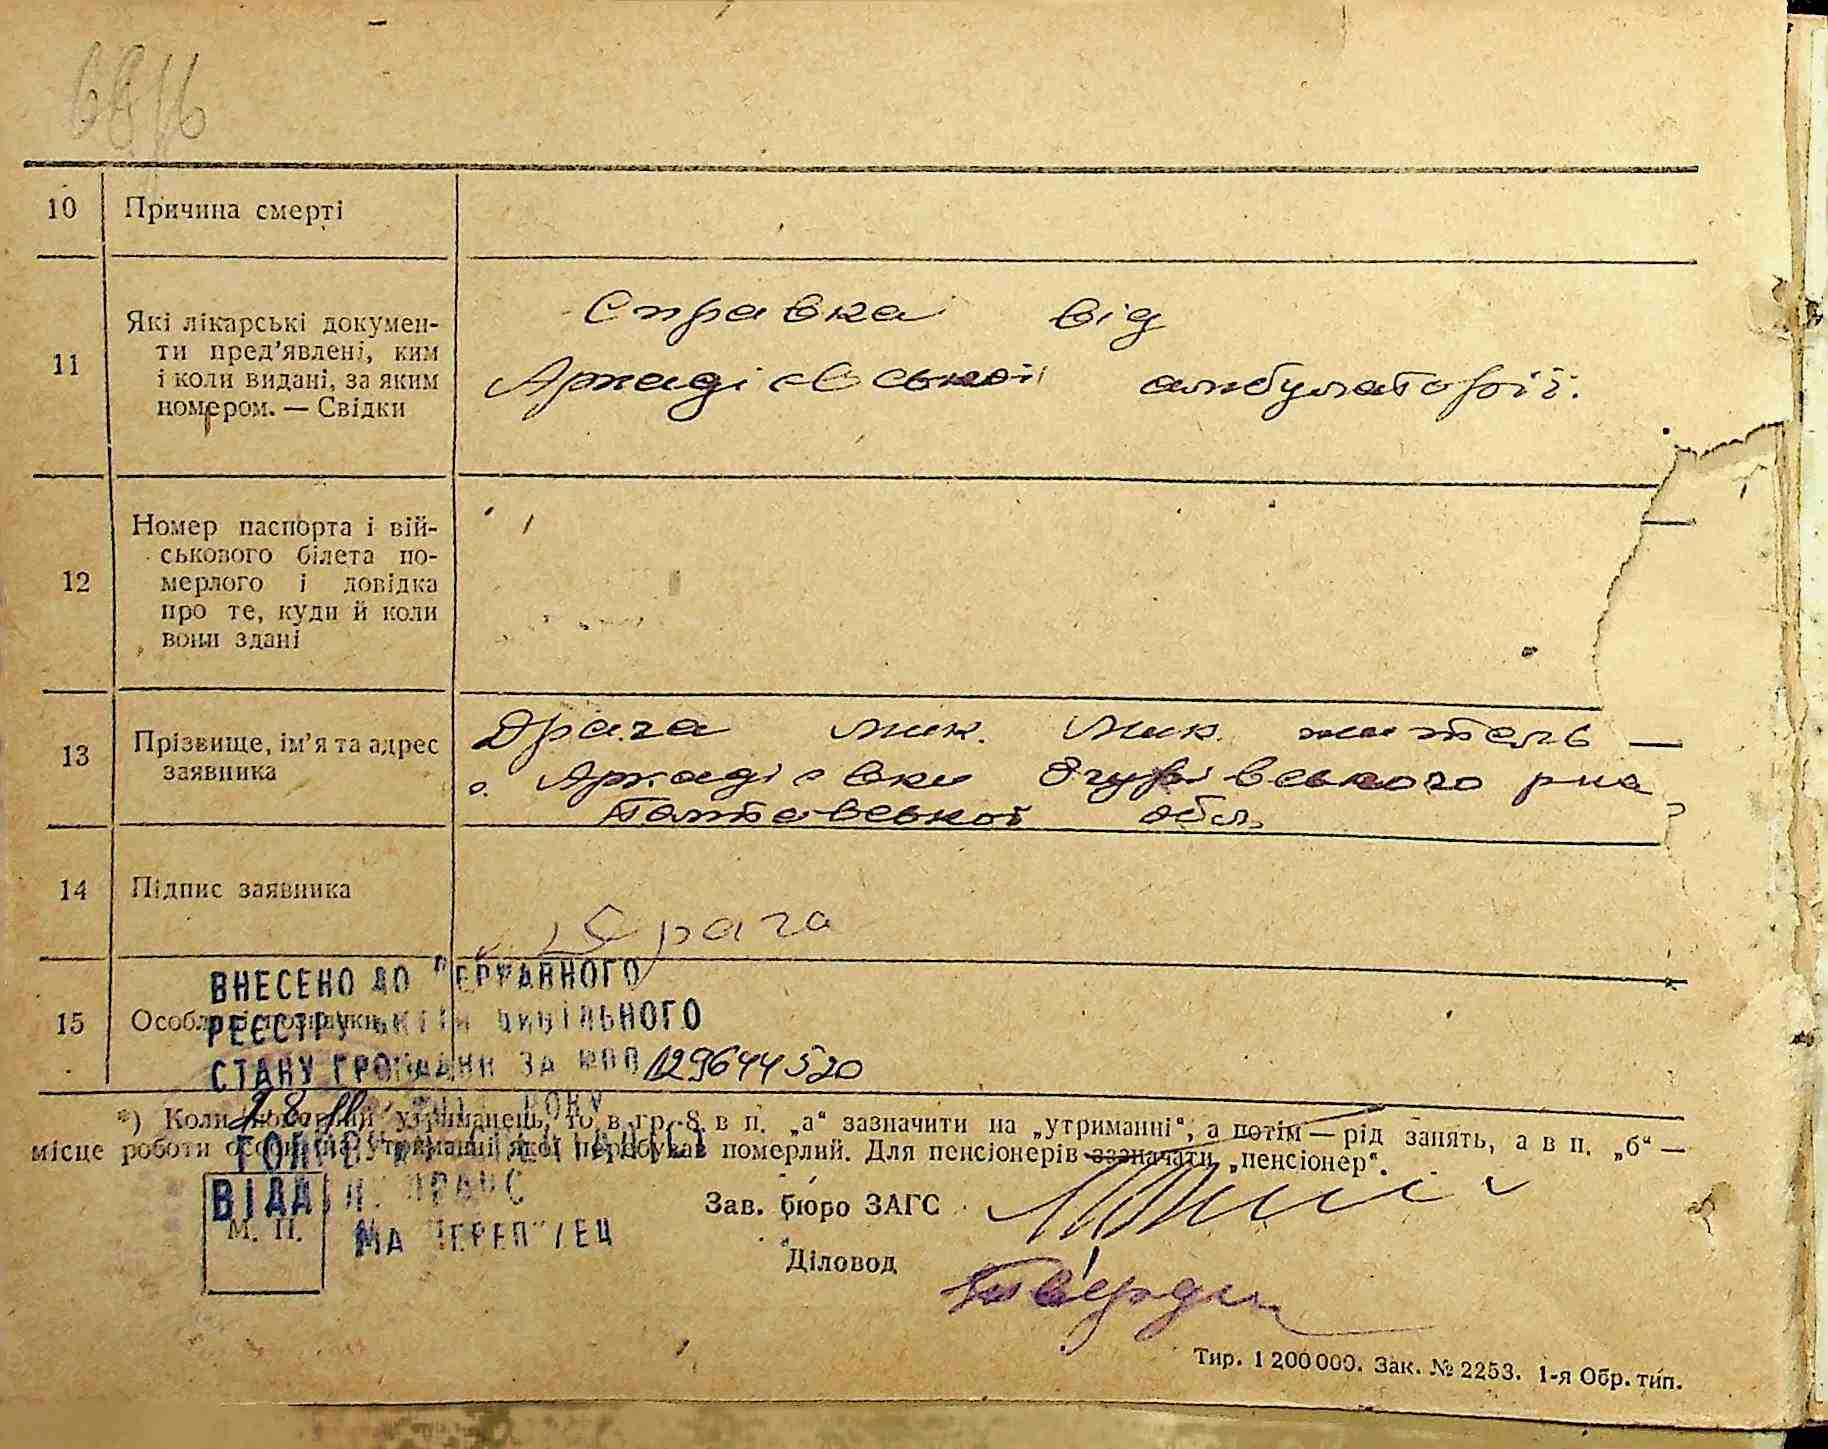 10 Причина смерті
11 Які лікарські докумен-
ти пред’явлені, ким
і коли видані, за яким
номером. — Свідки
Справка від
Аркадієвської амбулаторії.
12 Номер паспорта і вій-
ськового білета по-
мерлого і довідка
про те, куди й коли
вони здані
13 Прізвище, ім’я та адрес
заявника
Драга Мик. Мик. житель —
с. Аркадієвки Згурівського р-на
Полтавської обл.
14 Підпис заявника
Драга
ВНЕСЕНО ДО ДЕРЖАВНОГО
15 Особливі познаки
РЕЄСТРУ АКТІВ ЦИВІЛЬНОГО
СТАНУ ГРОМАДЯН ЗА №00129644520
РОКУ
*) Коли померлий утриманець, то в гр. 8 в п. „а“ зазначити на „утриманні“, а потім — рід занять, а в п. „б“ —
місце роботи особи, на утриманні якої перебував померлий. Для пенсіонерів зазначати „пенсіонер“.
ВІДДІЛ
М. П.
Зав. бюро ЗАГС
Діловод
Тир. 1 200 000. Зак. № 2253. 1-я Обр. тип.